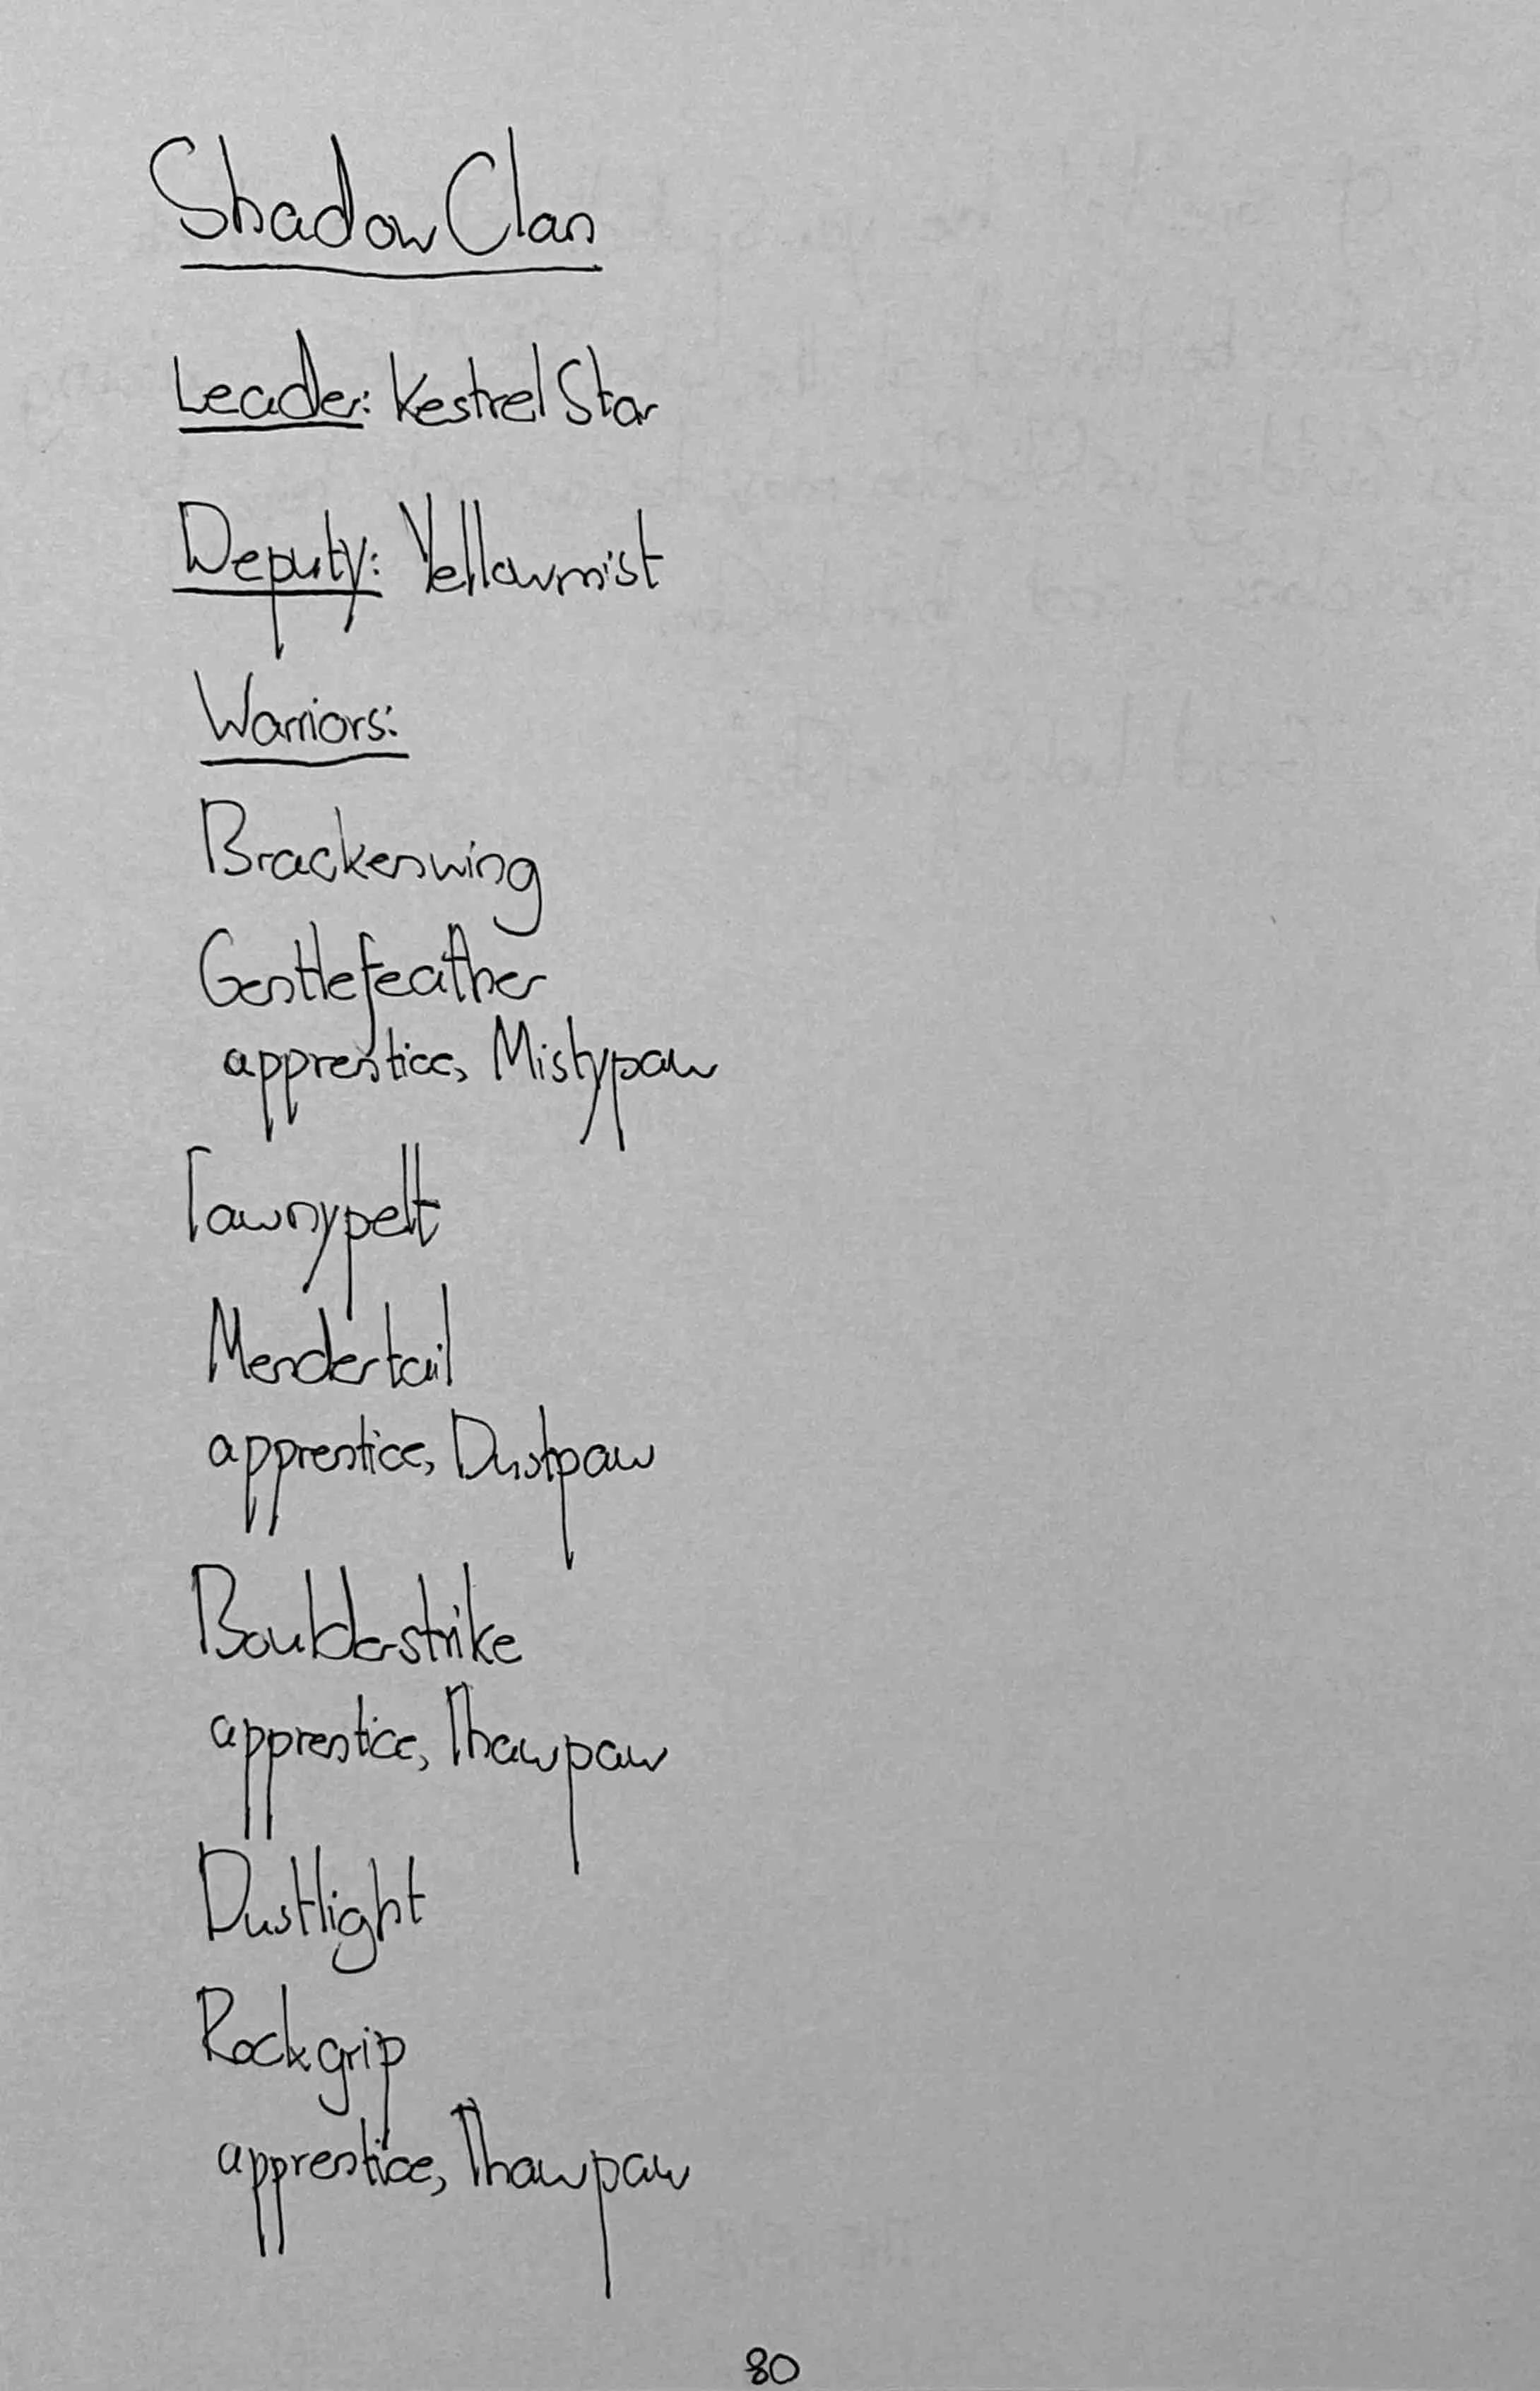 ShadowClan
Leader: Kestrel Star
Deputy: Yellowmist
Warriors:
Brackenwing
Gentlefeather
apprentice, Mistypaw
Tawnypelt
Mendertail
apprentice, Dustpaw
Boulderstrike
apprentice, Thawpaw
Dustlight
Rockgrip
apprentice, Thawpaw
80